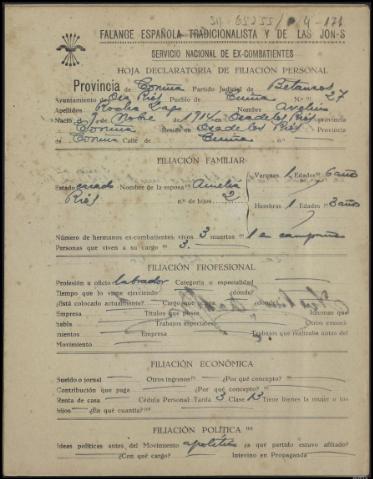 FALANGE ESPAÑOLA TRADICIONALISTA Y DE LAS JON-S
SERVICIO NACIONAL DE EX-COMBATIENTES
HOJA DECLARATORIA DE FILIACIÓN PERSONAL
Provincia de Coruña Partido Judicial de Betanzos
Ayuntamiento de Oza Ríos Pueblo de Cuiña N.º 27
Apellidos Nombre Avelino
Nació 9 de Nobre de 1914 en Oza de los Ríos Provincia
Coruña Reside en Oza de los Ríos Provincia
de Coruña Calle de Cuiña N.º
FILIACIÓN FAMILIAR
Varones 1 Edades 6 años
Estado casado Nombre de la esposa Amelia
n.º de hijos 2
Hembras 1 Edades 3 años
Número de hermanos ex-combatientes vivos 3 muertos 1 en campaña
Personas que viven a su cargo 3
FILIACIÓN PROFESIONAL
Profesión u oficio labrador Categoría o especialidad
Tiempo que lo viene ejerciendo dónde
¿Está colocado actualmente? Cargo que
Empresa Títulos que posee Idiomas que
habla Trabajos especiales Otros conoci-
mientos Empresa Trabajos realizados antes del
Movimiento
FILIACIÓN ECONÓMICA
Sueldo o jornal Otros ingresos ¿Por qué concepto?
Contribución que paga ¿Por qué concepto?
Renta de casa Cédula Personal Tarifa 3 Clase 13 Tiene bienes la mujer o los
hijos ¿En qué cuantía?
FILIACIÓN POLÍTICA
Ideas políticas antes del Movimiento apolítico ¿a qué partido estuvo afiliado?
¿Con qué cargo? Intervino en Propaganda